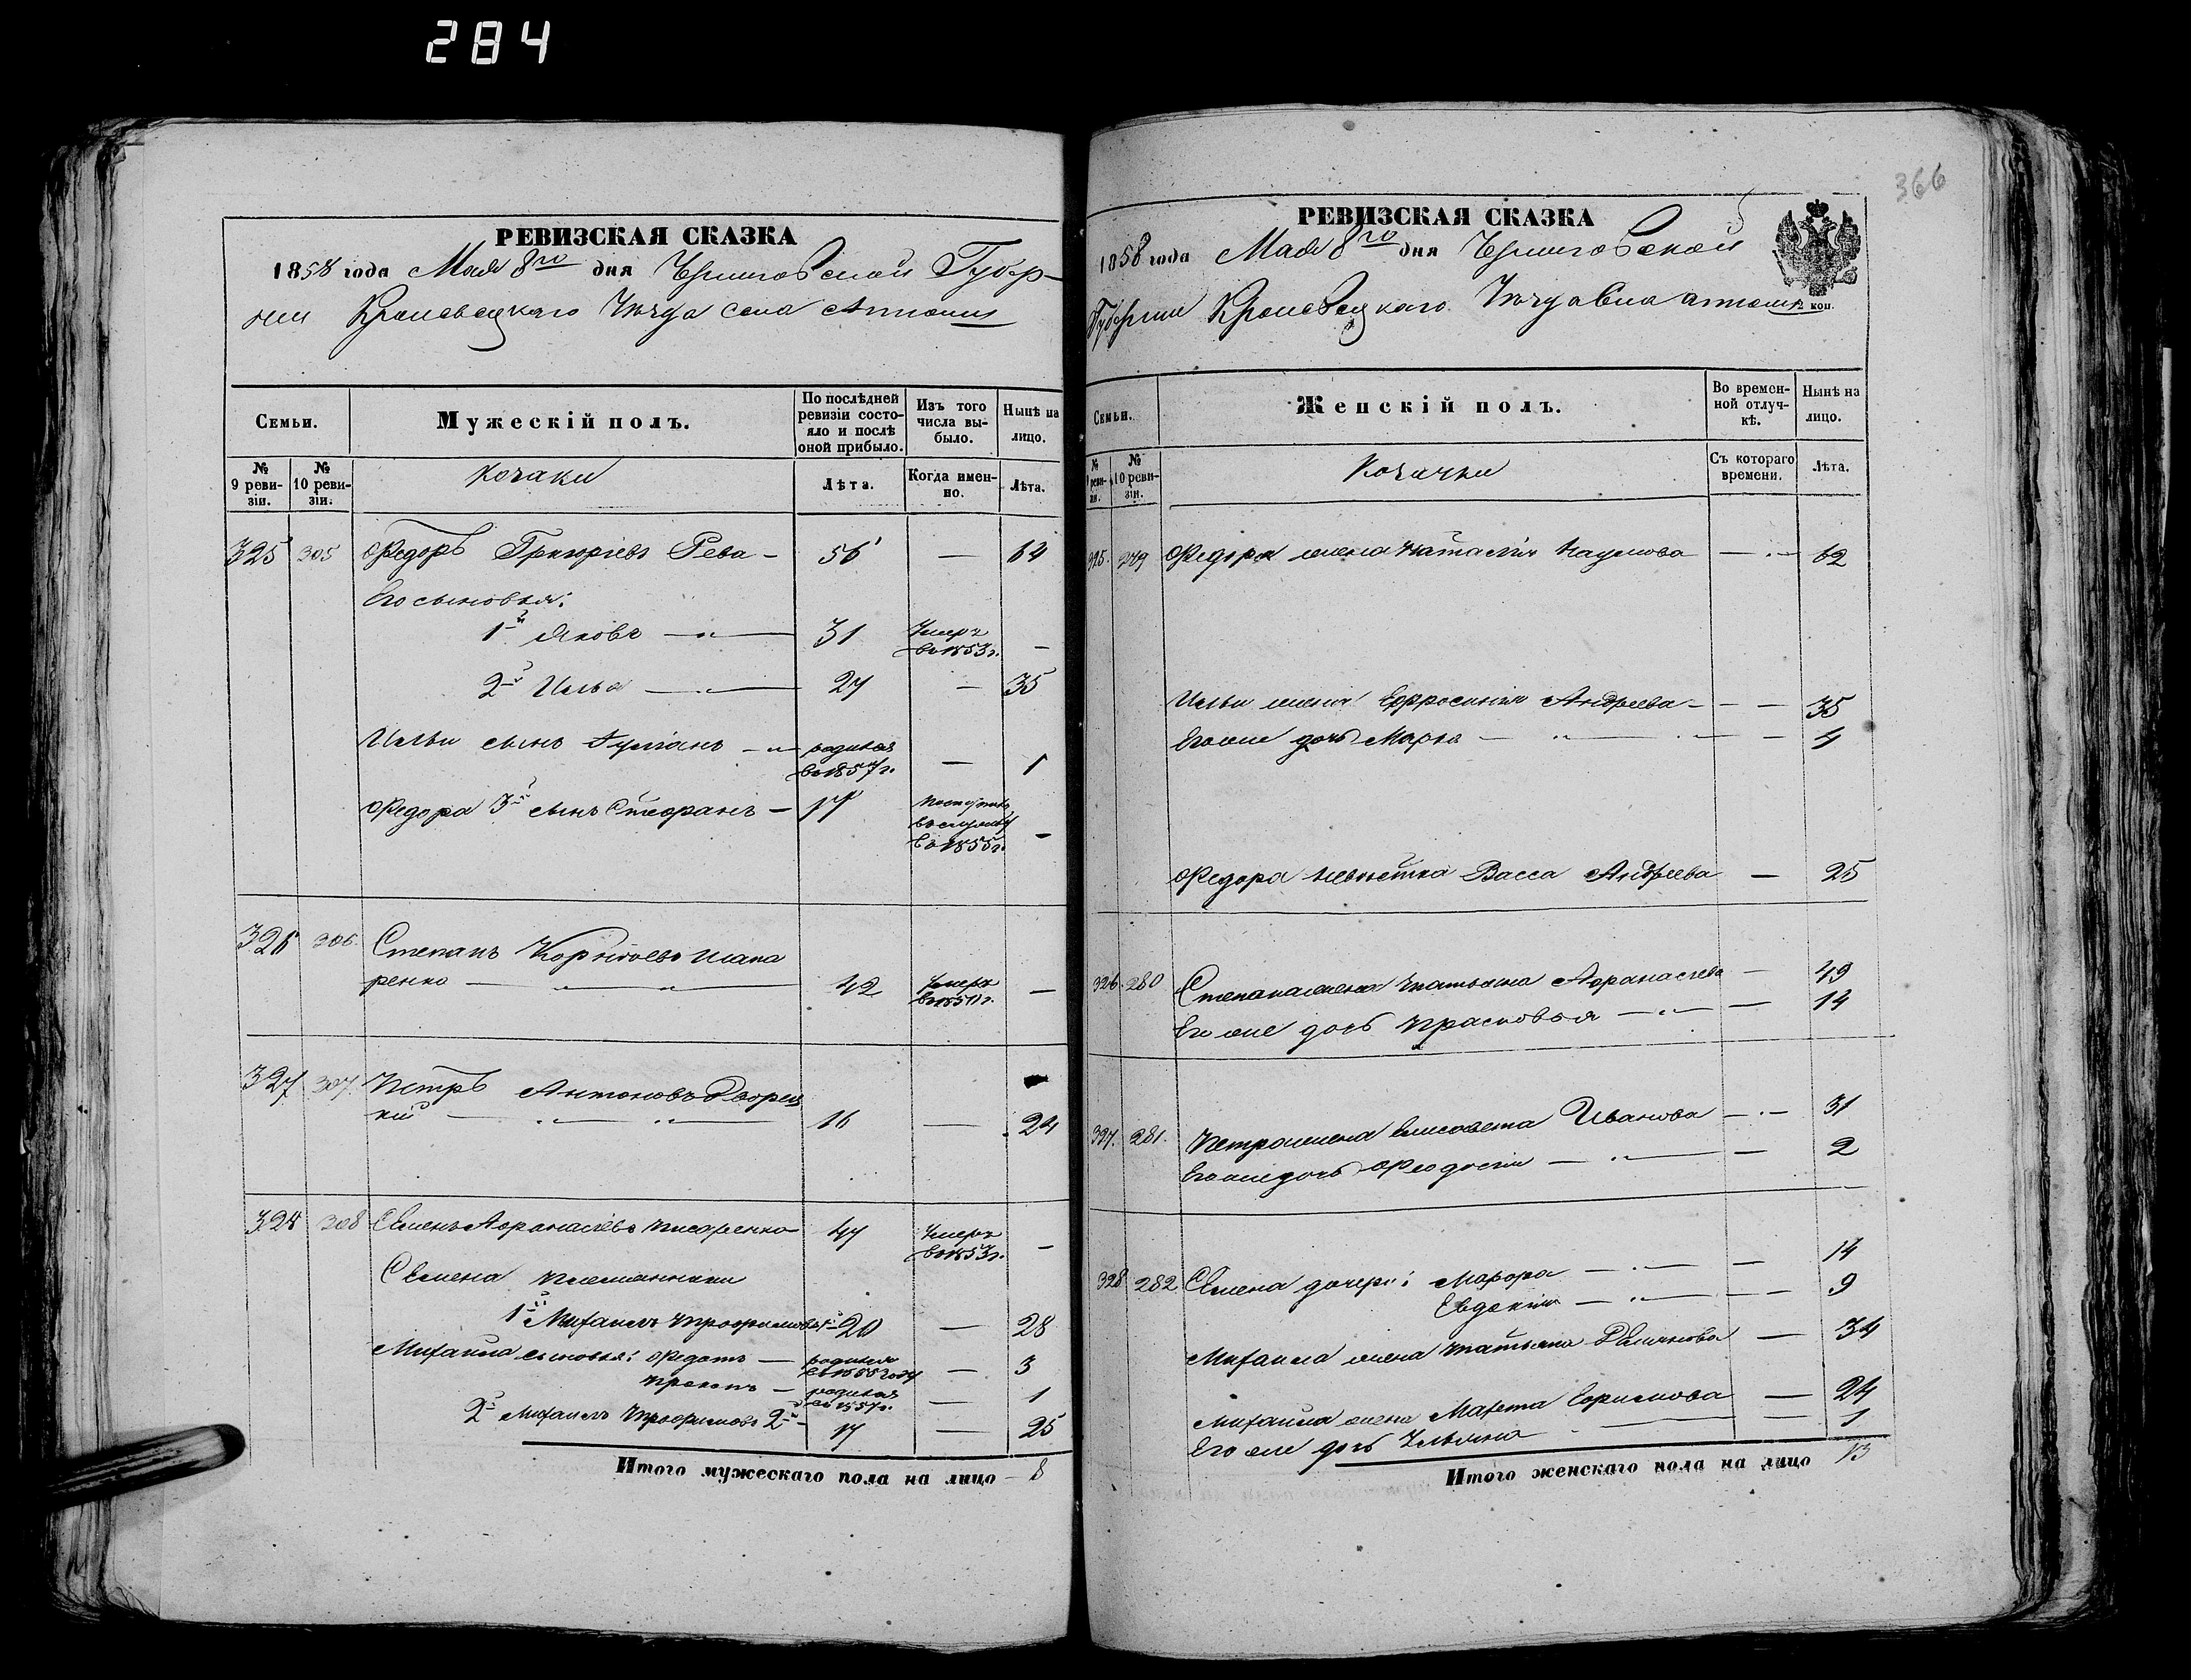 284
366
РЕВИЗСКАЯ СКАЗКА
1858 года Мая 8го дня Черниговской Губер-
нии Кролевецкаго Уѣзда Села
Семьи.
Мужескій полъ.
По послѣдней ревизіи состояло и послѣ оной прибыло.
Изъ того числа выбыло.
Нынѣ на лицо.
№ 9 ревизіи.
№ 10 ревизіи.
Козаки
Лѣта.
Когда именно.
Лѣта.
325 305 Федоръ Григоріевъ Рева - 56 — 64
Его сыновья:
1й Яковъ — 31 Умеръ въ 1853 г. -
2й Илья — 27 — 35
Ильи сынъ — родился въ 1857 г. — 1
Федора 3й сынъ Стефанъ — 17 въ 1855 г. -
326 306. Степанъ
ренко — 42 Умеръ —
327 307. Петръ Антоновъ Дворец
кій — 16 — 24
328 308 Семенъ Афанасіевъ Писаренко 47 Умеръ въ 1853 г. -
Семена племянники
1й Михаилъ Трофимовъ 1й - 20 — 28
Михаила сыновья: Федотъ — родился въ 1855 году — 3
Прокопъ — родился въ 1857 г. — 1
2й Михаилъ Трофимовъ 2й - 17 — 25
Итого мужескаго пола на лицо - 8
РЕВИЗСКАЯ СКАЗКА
1858 года Мая 8го дня Черниговской
Губерніи Кролевецкаго Уѣзда Села
коп.
Семьи.
Женскій полъ.
Во временной отлучкѣ.
Нынѣ на лицо.
№ 9 ревизіи.
№ 10 ревизіи.
Козачки
Съ котораго времени.
Лѣта.
325. 279 Федора жена Наталія Наумова — 62
Ильи жена Ефросинія Андреева — — 35
Его же дочь Марья — — 4
Федора невѣстка Васса Андреева — 25
326 280 Степана жена Татьяна Афанасіева — 49
Его же дочь Прасковья — — 14
327. 281. Петра жена Елисавета Иванова — 31
Его же дочь Феодосія — — 2
14
328 282 Семена дочери: Мавра — —
Евдокія — — 9
Михаила жена Татьяна Демьянова — 34
Михаила жена Марфа Ефимова — 24
Его же дочь Ульяна — 1
Итого женскаго пола на лицо 13